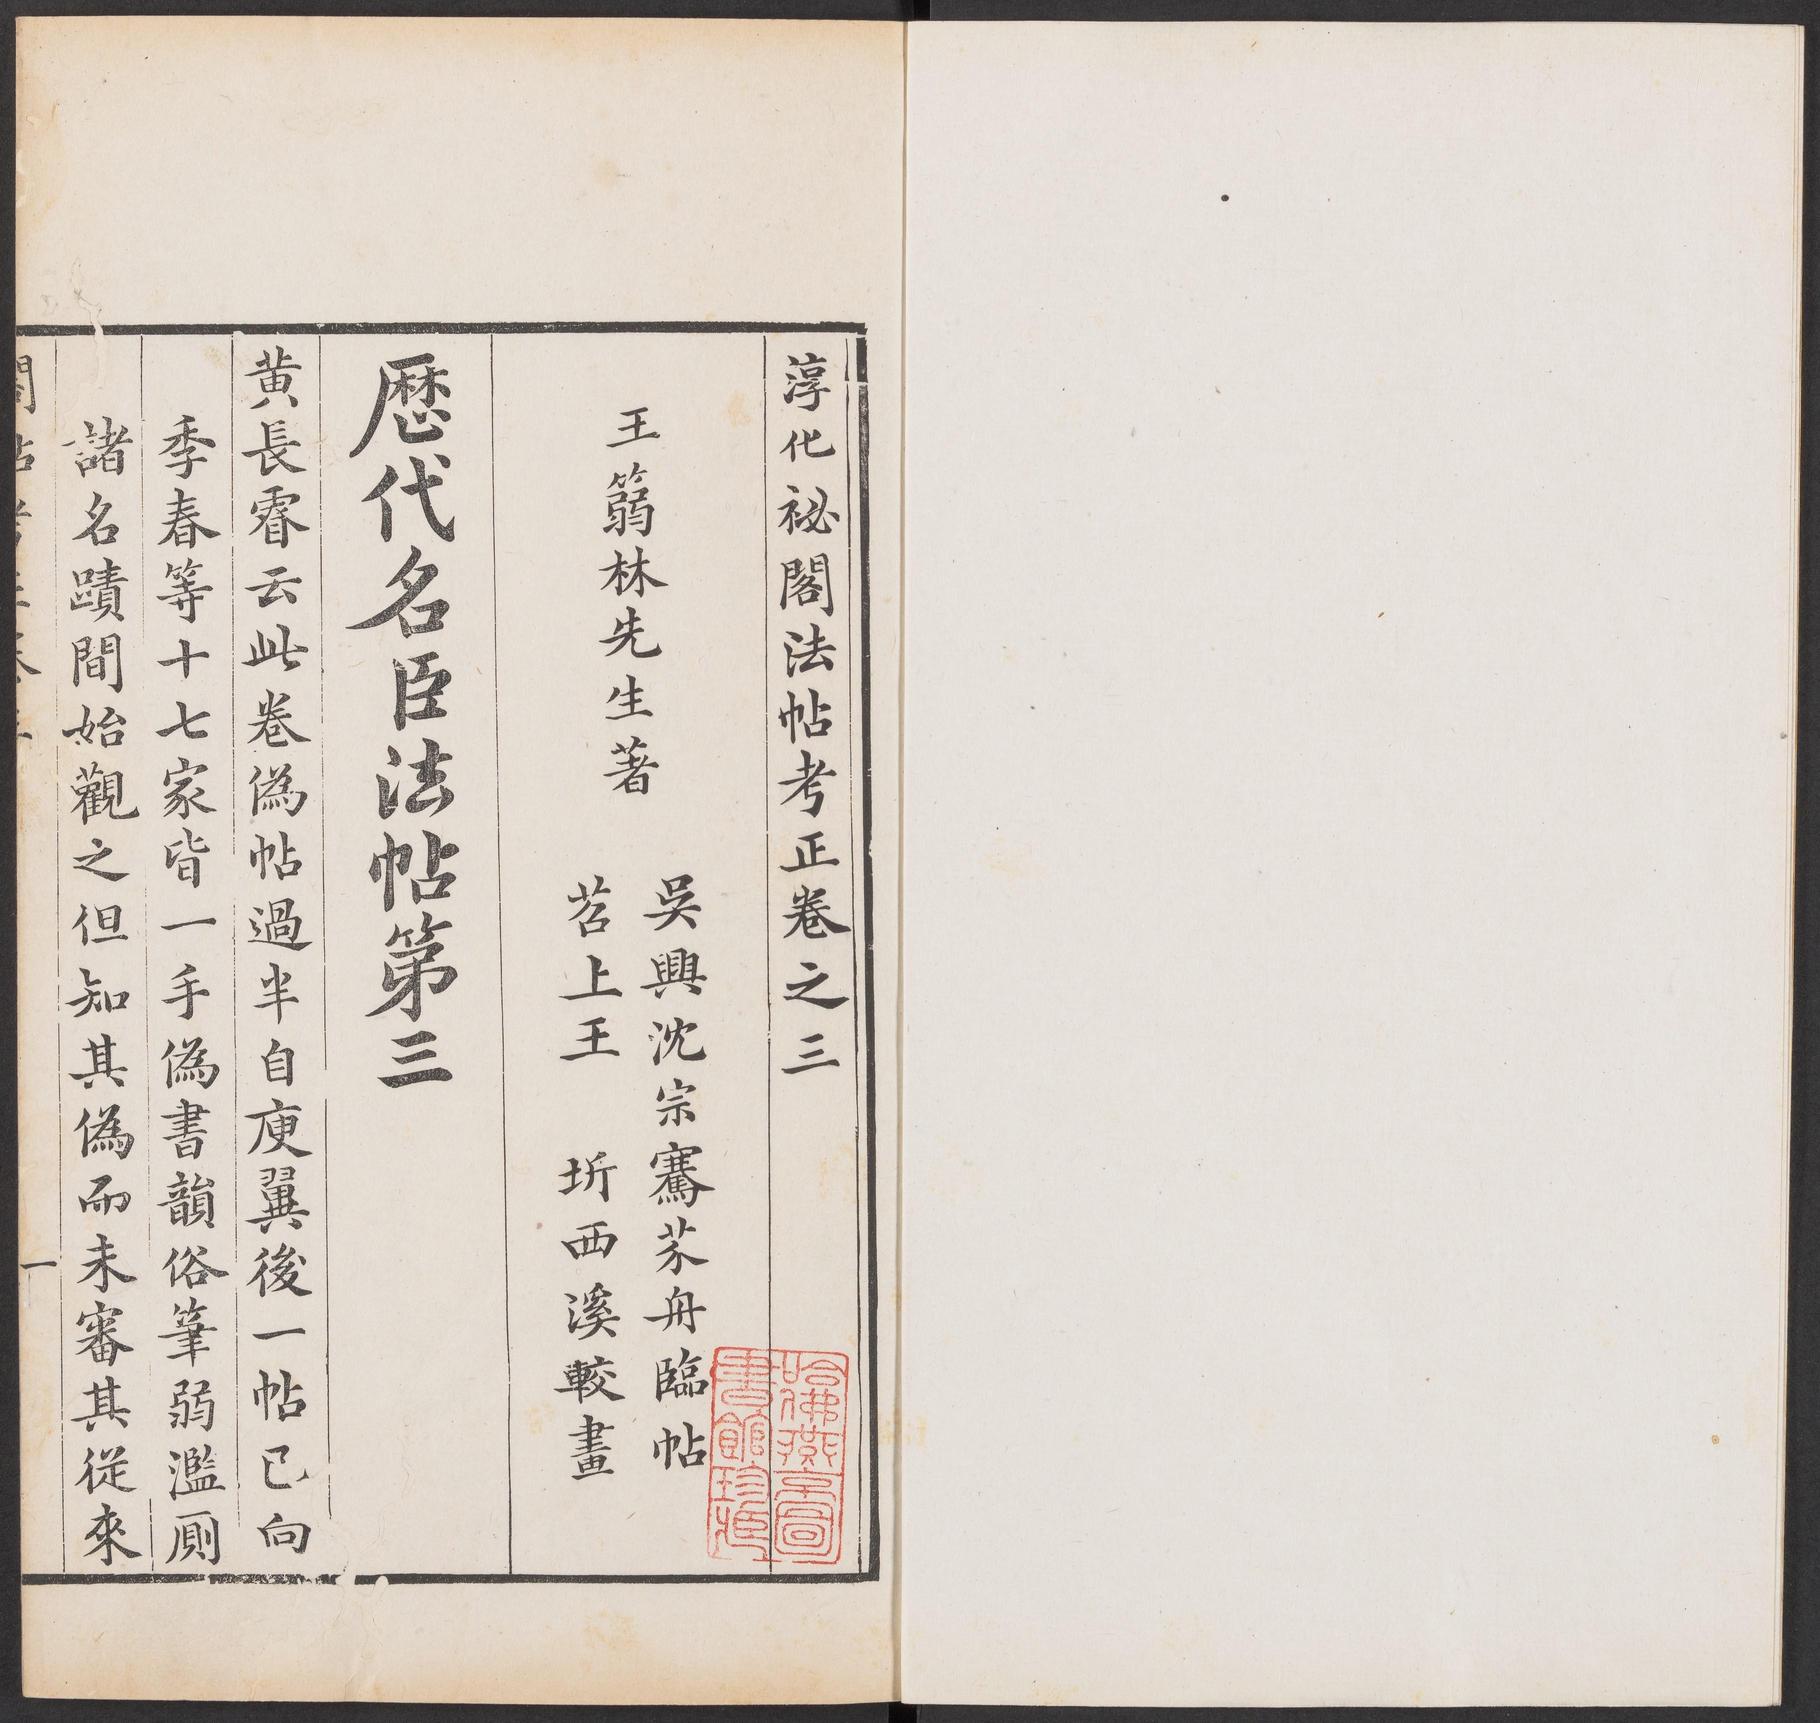 淳化祕閣法帖考正卷之三
王篛林先生著
吳興沈宗騫芥舟臨帖
苕上王 圻西溪較畫
歷代名臣法帖第三
黄長睿云此卷偽帖過半自庾翼後一帖已向
季春等十七家皆一手偽書韻俗筆弱濫厠
諸名蹟間始觀之但知其偽而未審其從來
一
哈佛燕京圖
書館珍藏